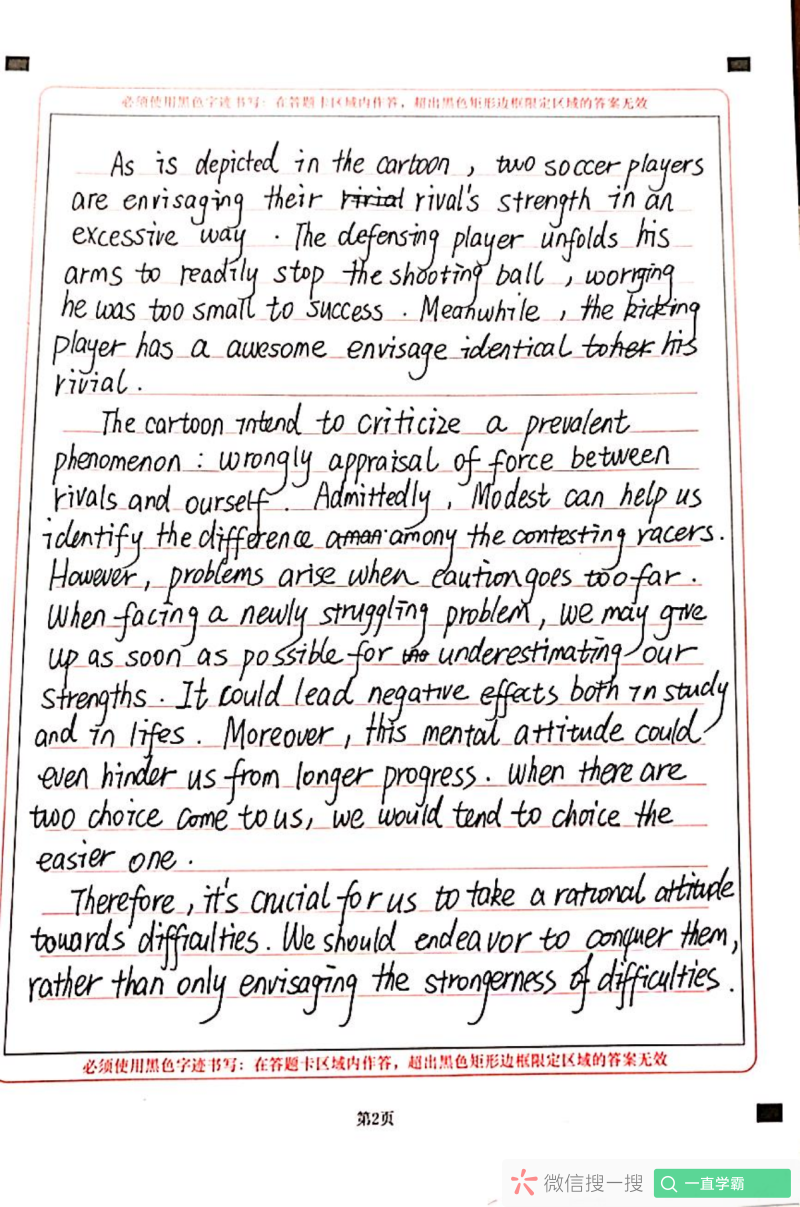 必须使用黑色字迹书写：在答题卡区域内作答，超出黑色矩形边框限定区域的答案无效
As is depicted in the cartoon , two soccer players
are envisaging their rivial rival's strength in an
excessive way . The defensing player unfolds his
arms to readily stop the shooting ball , worrging
he was too small to success . Meanwhile , the kicking
player has a awesome envisage identical toher his
rivial .
The cartoon intend to criticize a prevalent
phenomenon : wrongly appraisal of force between
rivals and ourself . Admittedly , Modest can help us
identify the difference aman among the contesting racers .
However , problems arise when caution goes too far .
When facing a newly struggling problem , we may give
up as soon as possible for the underestimating our
strengths . It could lead negative effects both in study
and in lifes . Moreover , this mental attitude could
even hinder us from longer progress . When there are
two choice come to us , we would tend to choice the
easier one .
Therefore , it's crucial for us to take a rational attitude
towards difficulties . We should endeavor to conquer them ,
rather than only envisaging the strongerness of difficulties .
必须使用黑色字迹书写：在答题卡区域内作答，超出黑色矩形边框限定区域的答案无效
第2页
微信搜一搜 一直学霸